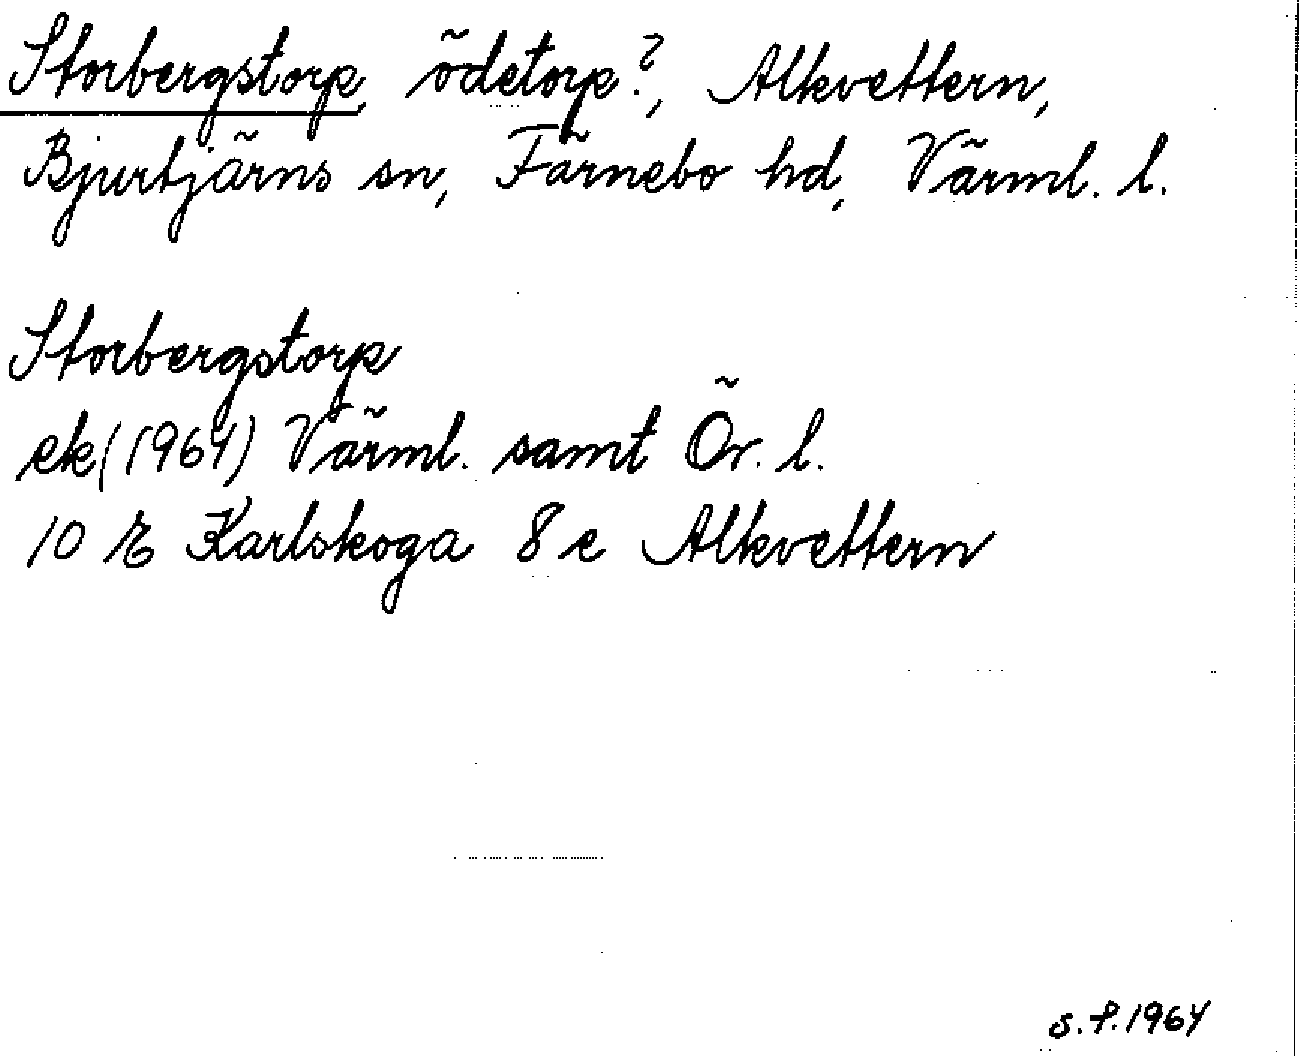 Storbergstorp, ödetorp?, Alkvettern,
Bjurtjärns sn, Färnebo hd, Värml. l.
Storbergstorp
ek (1964) Värml. samt Ör. l.
10 E Karlskoga 8 e Alkvettern
s. f. 1964